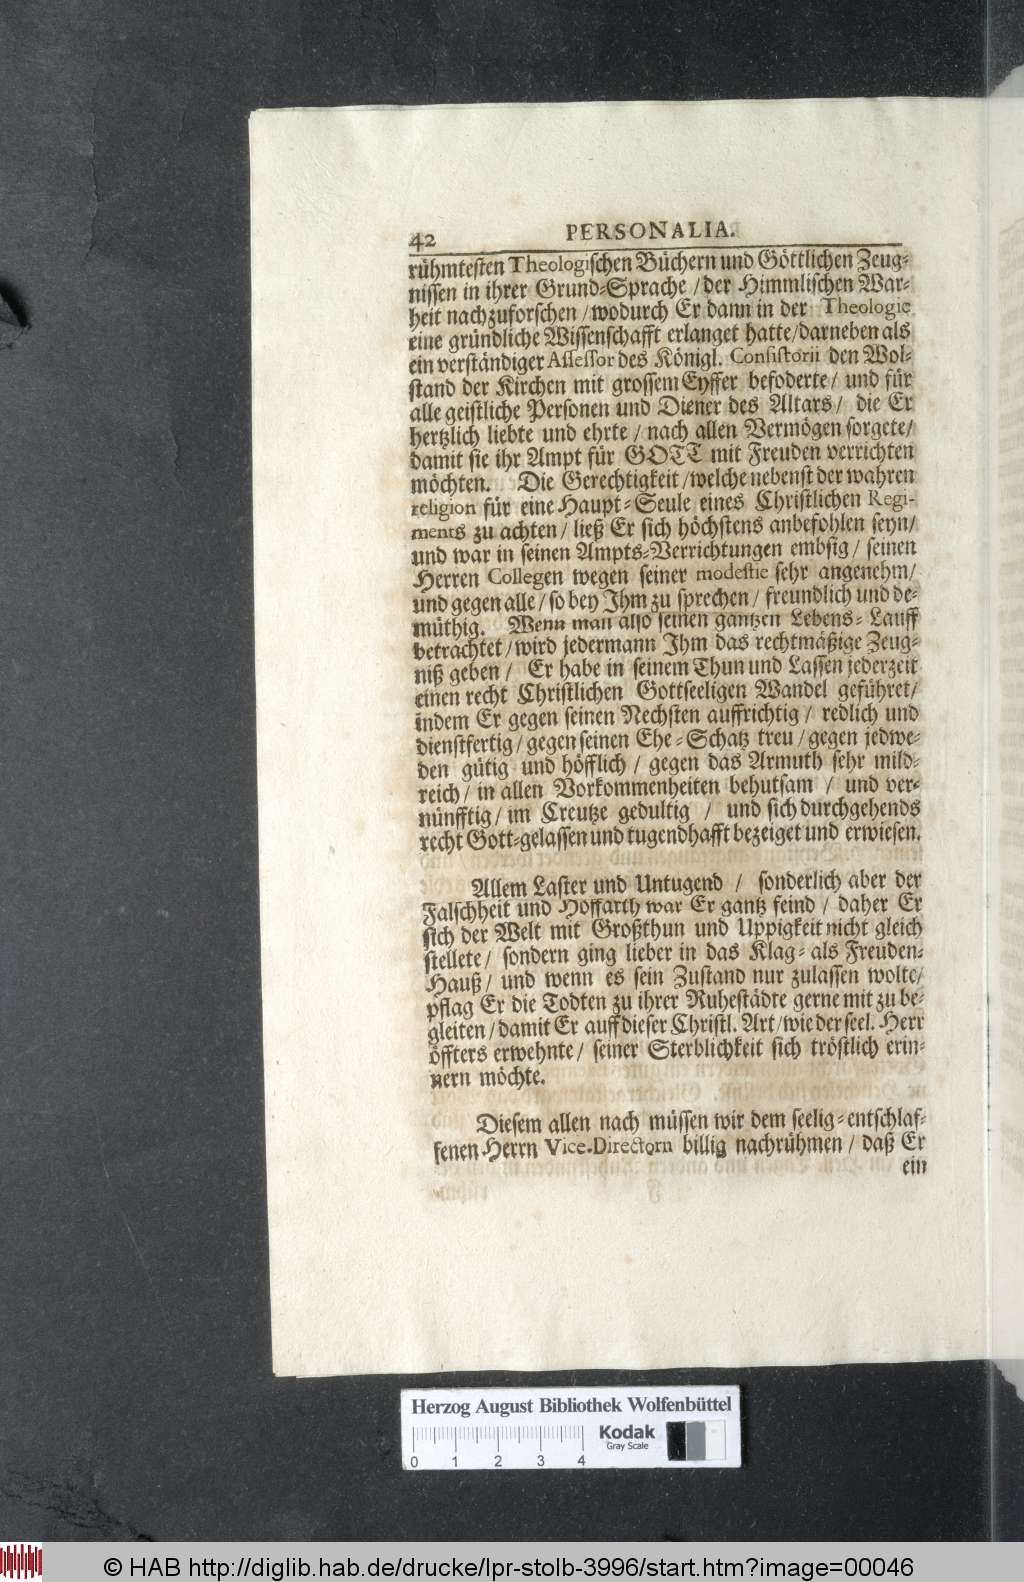 42 PERSONALIA.
rühmtesten Theologischen Büchern und Göttlichen Zeug-
nissen in ihrer Grund-Sprache / der Himmlischen War-
heit nachzuforschen / wodurch Er dann in der Theologie
eine gründliche Wissenschafft erlanget hatte / darneben als
ein verständiger Assessor des Königl. Consistorii den Wol-
stand der Kirchen mit grossem Eyffer befoderte / und für
alle geistliche Personen und Diener des Altars / die Er
hertzlich liebte und ehrte / nach allen Vermögen sorgete /
damit sie ihr Ampt für GOTT mit Freuden verrichten
möchten. Die Gerechtigkeit / welche nebenst der wahren
religion für eine Haupt-Seule eines Christlichen Regi-
ments zu achten / ließ Er sich höchstens anbefohlen seyn /
und war in seinen Ampts-Verrichtungen embsig / seinen
Herren Collegen wegen seiner modestie sehr angenehm /
und gegen alle / so bey Ihm zu sprechen / freundlich und de-
müthig. Wenn man also seinen gantzen Lebens-Lauff
betrachtet / wird jedermann Ihm das rechtmäßige Zeug-
niß geben / Er habe in seinem Thun und Lassen jederzeit
einen recht Christlichen Gottseeligen Wandel geführet /
indem Er gegen seinen Nechsten auffrichtig / redlich und
dienstfertig / gegen seinen Ehe-Schatz treu / gegen jedwe-
den gütig und höfflich / gegen das Armuth sehr mild-
reich / in allen Vorkommenheiten behutsam / und ver-
nünfftig / im Creutze gedultig / und sich durchgehends
recht Gott-gelassen und tugendhafft bezeiget und erwiesen.
Allem Laster und Untugend / sonderlich aber der
Falschheit und Hoffarth war Er gantz feind / daher Er
sich der Welt mit Großthun und Uppigkeit nicht gleich
stellete / sondern ging lieber in das Klag-als Freuden-
Hauß / und wenn es sein Zustand nur zulassen wolte /
pflag Er die Todten zu ihrer Ruhestädte gerne mit zu be-
gleiten / damit Er auff dieser Christl. Art / wie der seel. Herr
öffters erwehnte / seiner Sterblichkeit sich tröstlich erin-
nern möchte.
Diesem allen nach müssen wir dem seelig-entschlaf-
fenen Herrn Vice-Directorn billig nachrühmen / daß Er
ein
Herzog August Bibliothek Wolfenbüttel
Kodak
Gray Scale
0 1 2 3 4
© HAB http://diglib.hab.de/drucke/lpr-stolb-3996/start.htm?image=00046